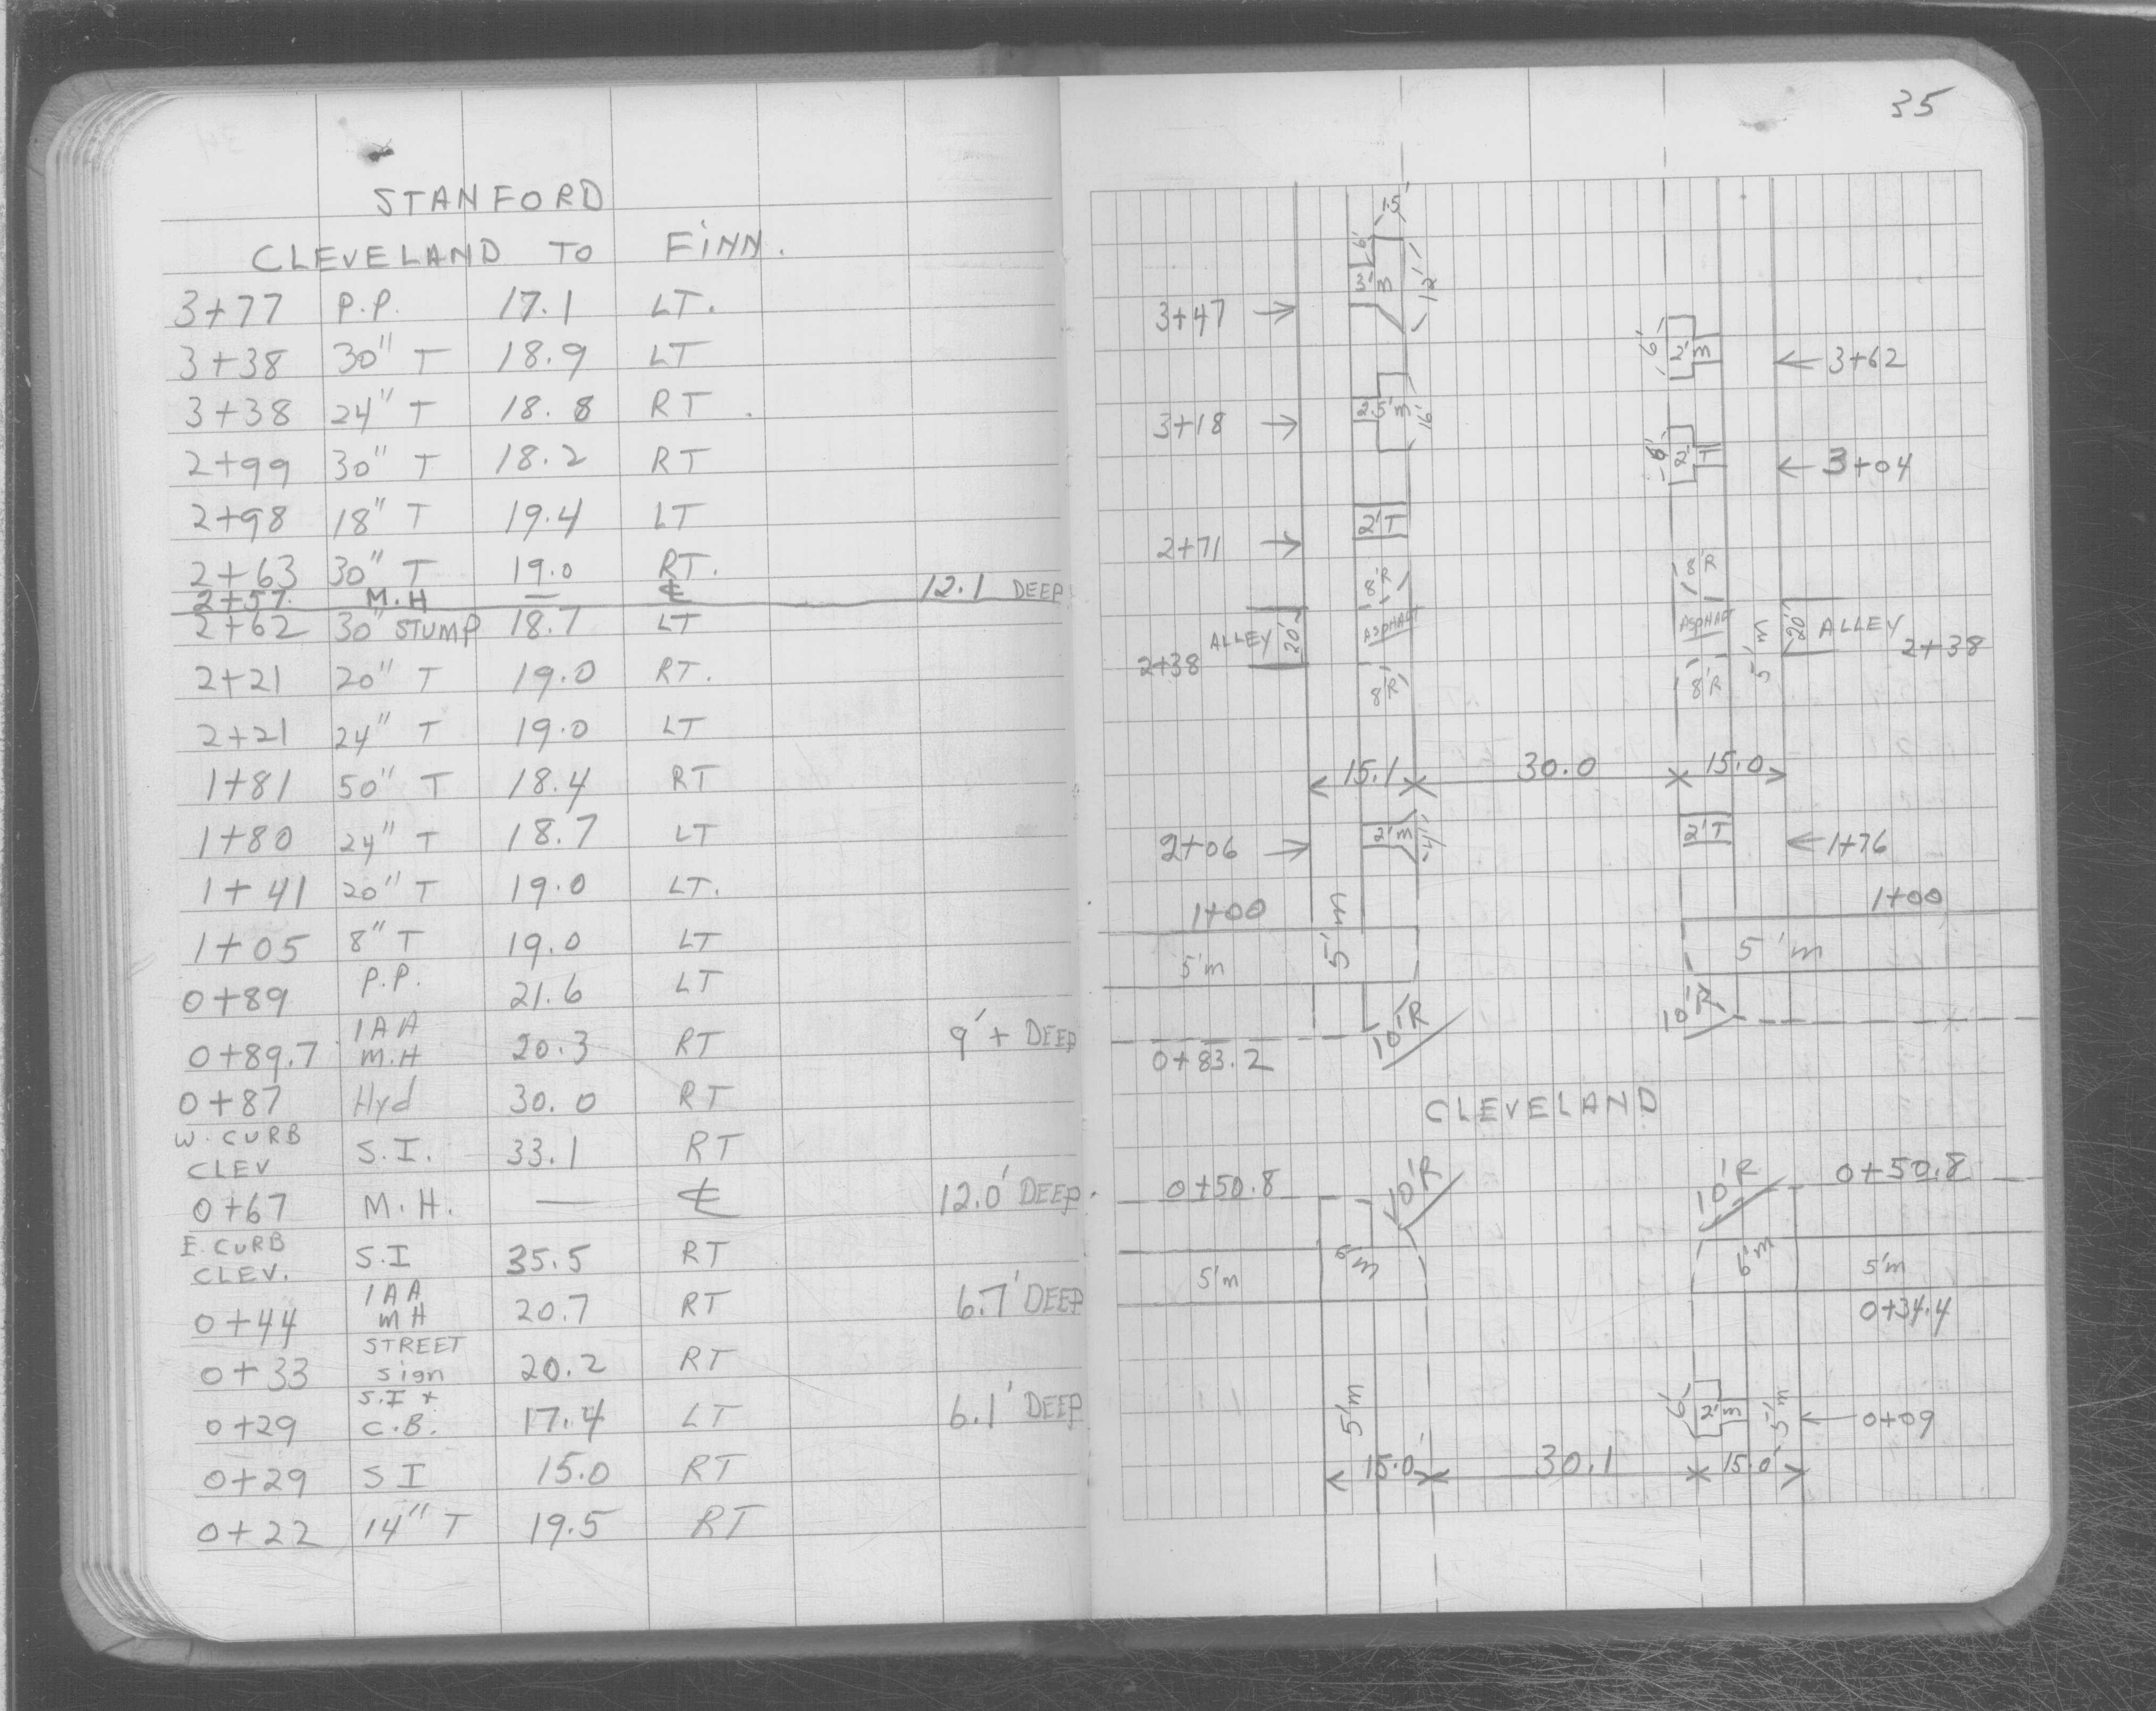 STANFORD
CLEVELAND TO FINN.
3+77 P.P. 17.1 LT.
3+38 30" T 18.9 LT
3+38 24" T 18.8 RT.
2+99 30" T 18.2 RT
2+98 18" T 19.4 LT
2+63 30" T 19.0 RT.
2+57 M.H — ℄ 12.1 DEEP
2+62 30" STUMP 18.7 LT
2+21 20" T 19.0 RT.
2+21 24" T 19.0 LT
1+81 50" T 18.4 RT
1+80 24" T 18.7 LT
1+41 20" T 19.0 LT.
1+05 8" T 19.0 LT
0+89 P.P. 21.6 LT
0+89.7 IAA M.H 20.3 RT 9'+ DEEP
0+87 Hyd 30.0 RT
W. CURB
CLEV S.I. 33.1 RT
0+67 M.H. — ℄ 12.0' DEEP.
E. CURB
CLEV. S.I 35.5 RT
0+44 IAA MH 20.7 RT 6.7' DEEP
0+33 STREET sign 20.2 RT
0+29 S.I + C.B. 17.4 LT 6.1' DEEP
0+29 SI 15.0 RT
0+22 14" T 19.5 RT
35
1.5'
6'
3' m
12'
3+47
6'
2' m
3+62
3+18
2.5' m
16'
6'
2'
T
3+04
2+71
2'T
8'R
8'R
ALLEY
20'
ASPHALT
ASPHALT
5'm
20'
ALLEY
2+38
2+38
8'R
8'R
15.1
30.0
15.0
2+06
2'm
4'
2'T
1+76
1+00
5'm
1+00
5'm
5'm
10'R
10'R
0+83.2
CLEVELAND
0+50.8
10'R
10'R
0+50.8
5'm
6'm
5'm
0+34.4
5'm
6'
2'm
5'm
0+09
15.0'
30.1
15.0'